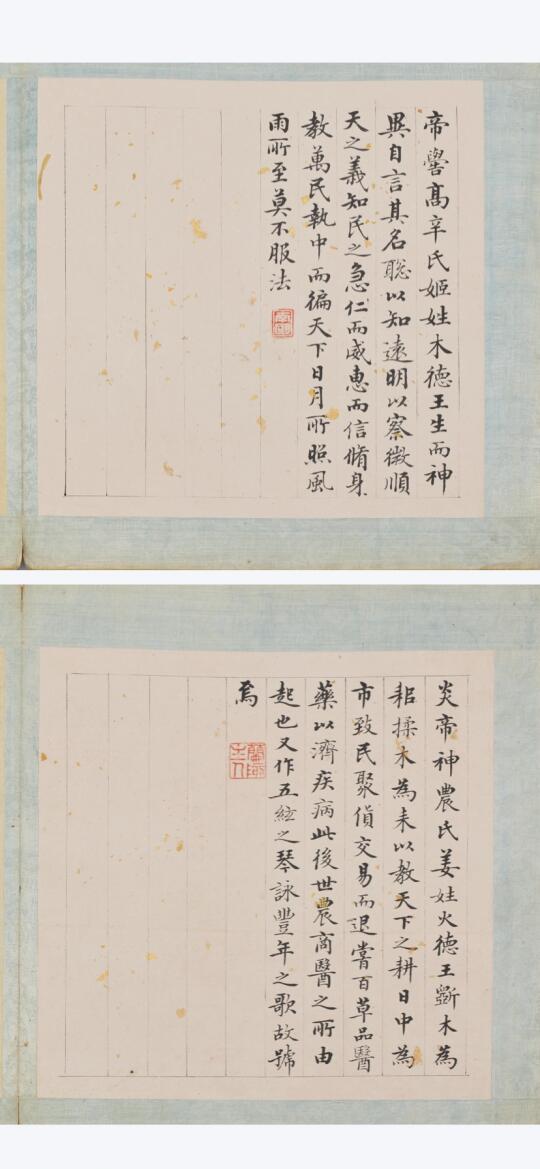 帝嚳高辛氏姬姓木德王生而神
異自言其名聡以知遠明以察微順
天之義知民之急仁而威惠而信脩身
教萬民執中而徧天下日月所照風
雨所至莫不服法
炎帝神農氏姜姓火德王斵木為
耜揉木為耒以教天下之耕日中為
市致民聚貨交易而退嘗百草品醫
藥以濟疾病此後世農商醫之所由
起也又作五絃之琴詠豐年之歌故號
焉